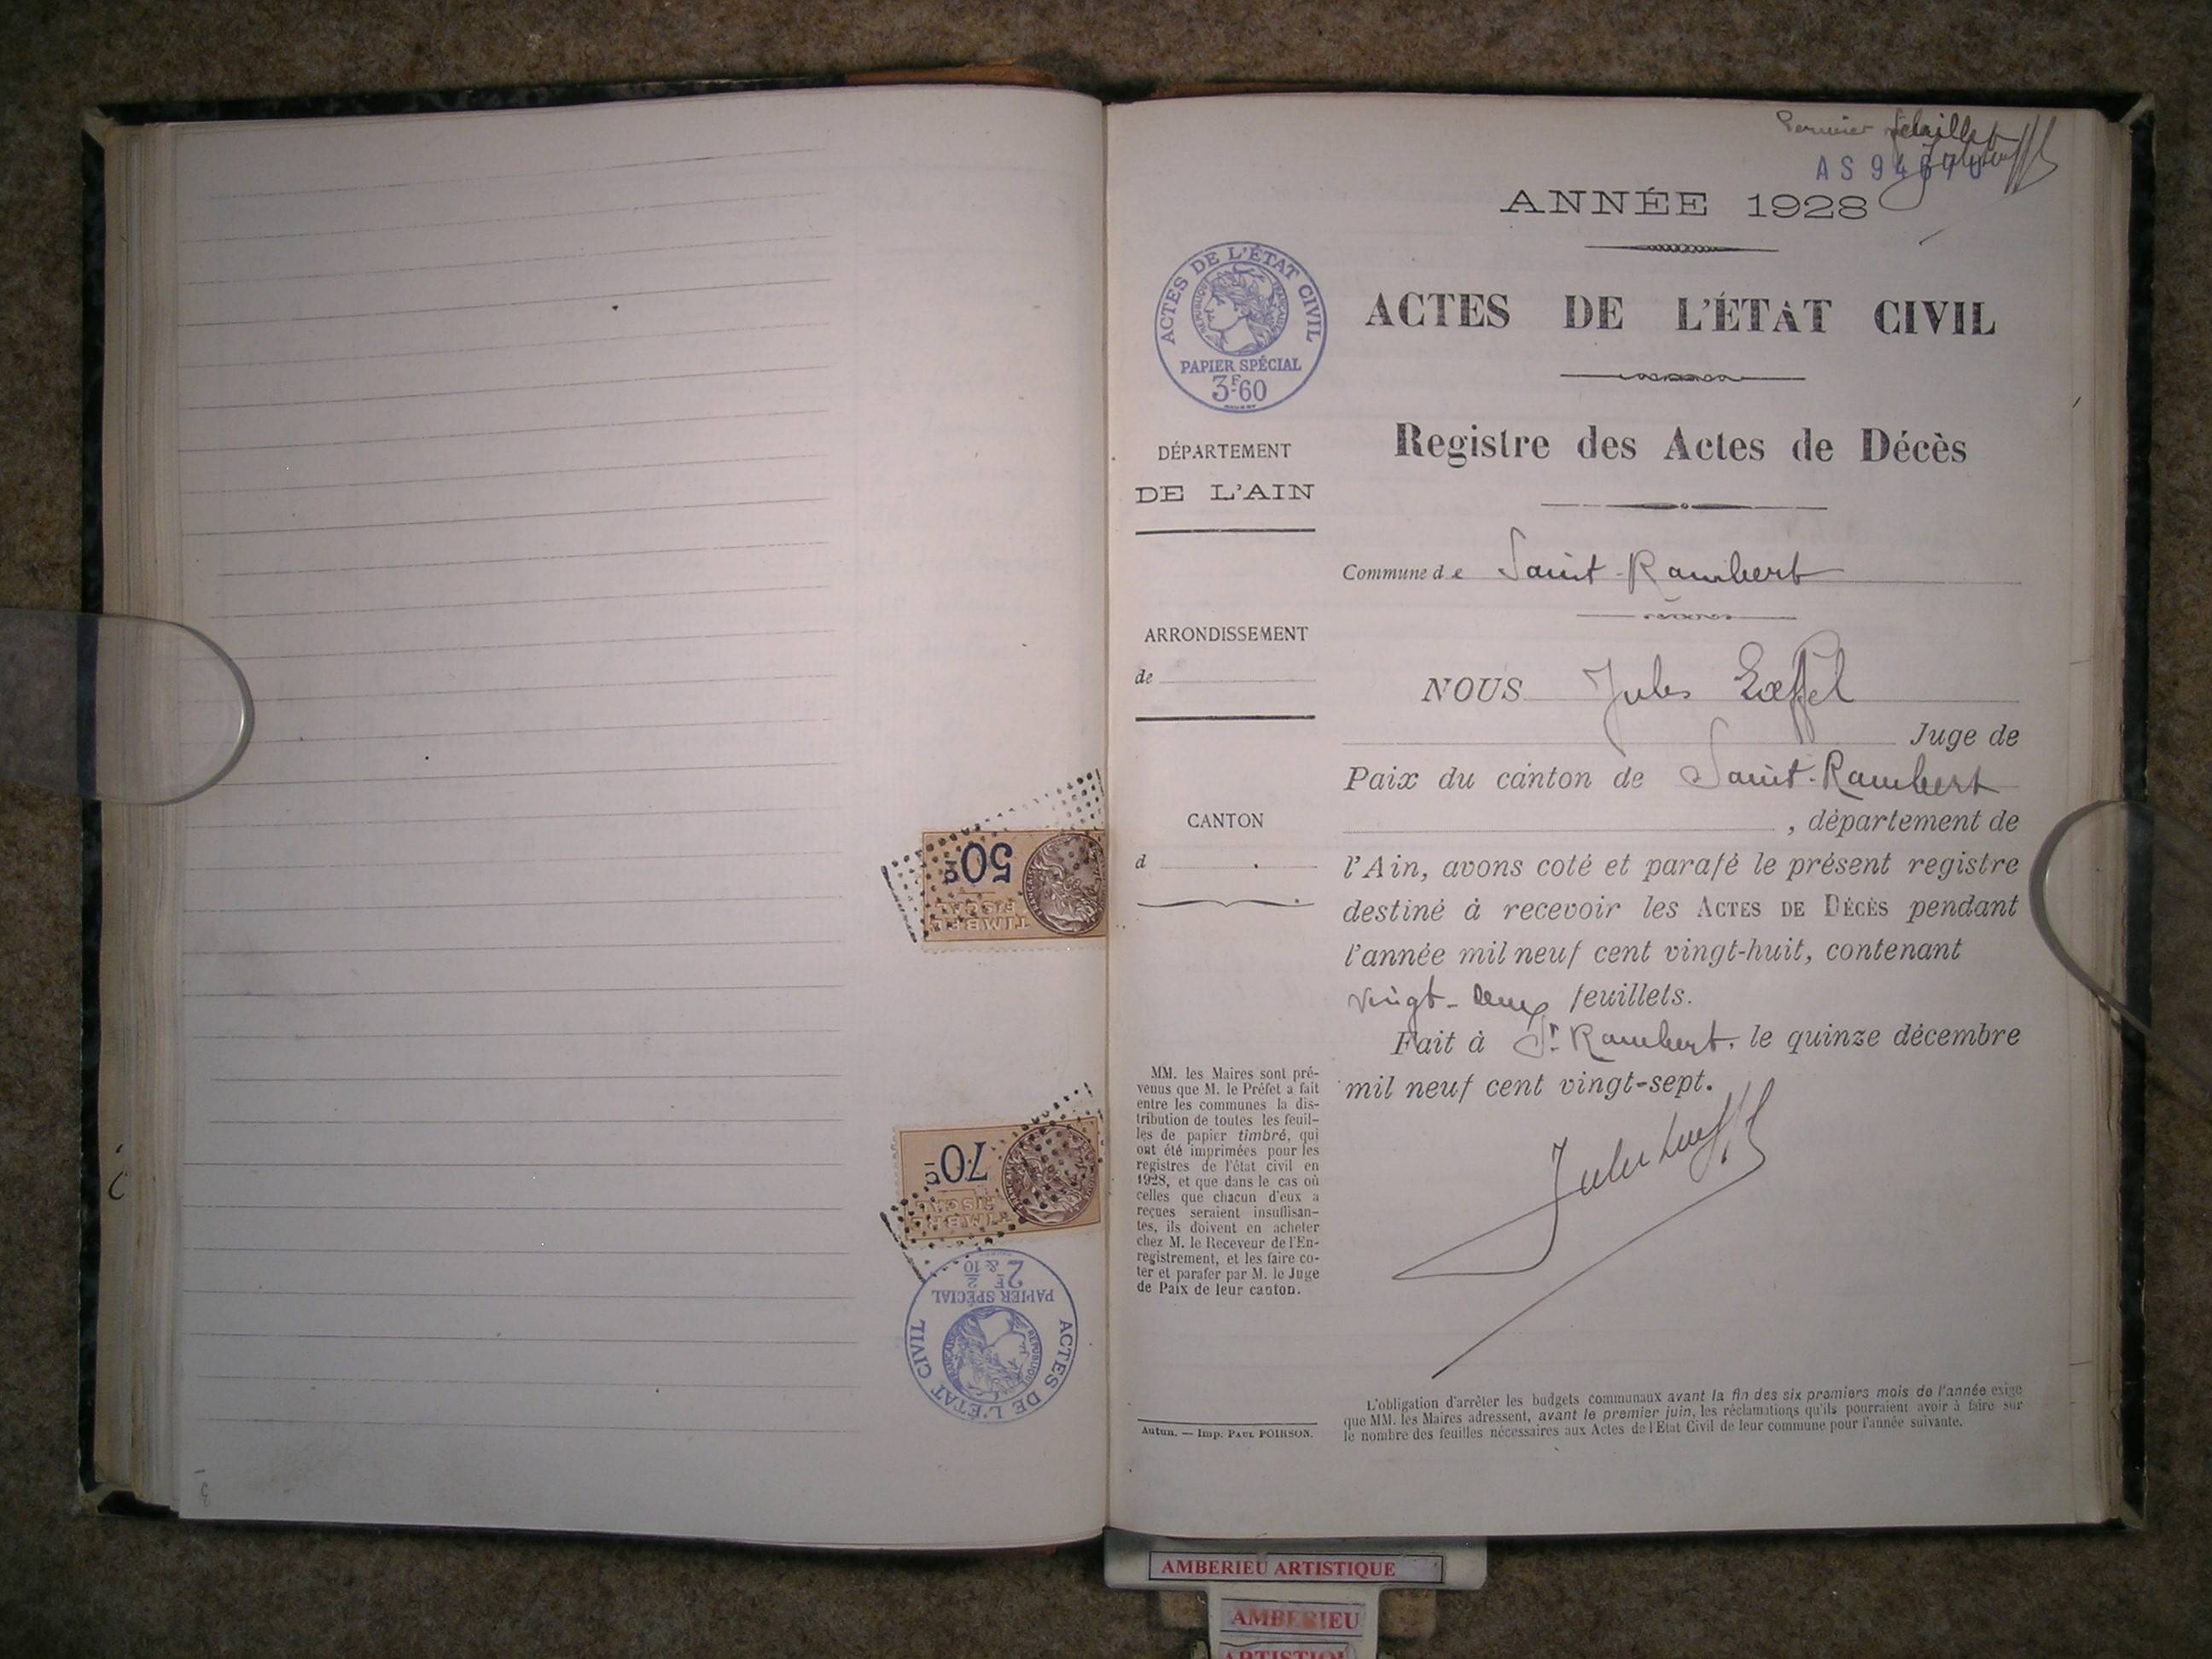 Premier feuillet
AS 94670
ANNÉE 1928
ACTES DE L'ÉTAT CIVIL
RÉPUBLIQUE FRANÇAISE
PAPIER SPÉCIAL
3F.60
ACTES DE L'ÉTAT CIVIL
Registre des Actes de Décès
DÉPARTEMENT
DE L'AIN
ARRONDISSEMENT
de
CANTON
d
Commune de Saint-Rambert
NOUS Jules Lœffel
Juge de
Paix du canton de Saint-Rambert
, département de
l'Ain, avons coté et parafé le présent registre
destiné à recevoir les ACTES DE DÉCÈS pendant
l'année mil neuf cent vingt-huit, contenant
vingt-deux feuillets.
Fait à St. Rambert, le quinze décembre
mil neuf cent vingt-sept.
MM. les Maires sont pré-
venus que M. le Préfet a fait
entre les communes la dis-
tribution de toutes les feuil-
les de papier timbré, qui
ont été imprimées pour les
registres de l'état civil en
1928, et que dans le cas où
celles que chacun d'eux a
reçues seraient insuffisan-
tes, ils doivent en acheter
chez M. le Receveur de l'En-
registrement, et les faire co-
ter et parafer par M. le Juge
de Paix de leur canton.
Autun. — Imp. PAUL POIRSON.
L'obligation d'arrêter les budgets communaux avant la fin des six premiers mois de l'année exige
que MM. les Maires adressent, avant le premier juin, les réclamations qu'ils pourraient avoir à faire sur
le nombre des feuilles nécessaires aux Actes de l'Etat Civil de leur commune pour l'année suivante.
50c
TIMBRE
FISCAL
70c
TIMBRE
FISCAL
2F & 2/10
PAPIER SPÉCIAL
RÉPUBLIQUE FRANÇAISE
ACTES DE L'ÉTAT CIVIL
AMBERIEU ARTISTIQUE
AMBERIEU